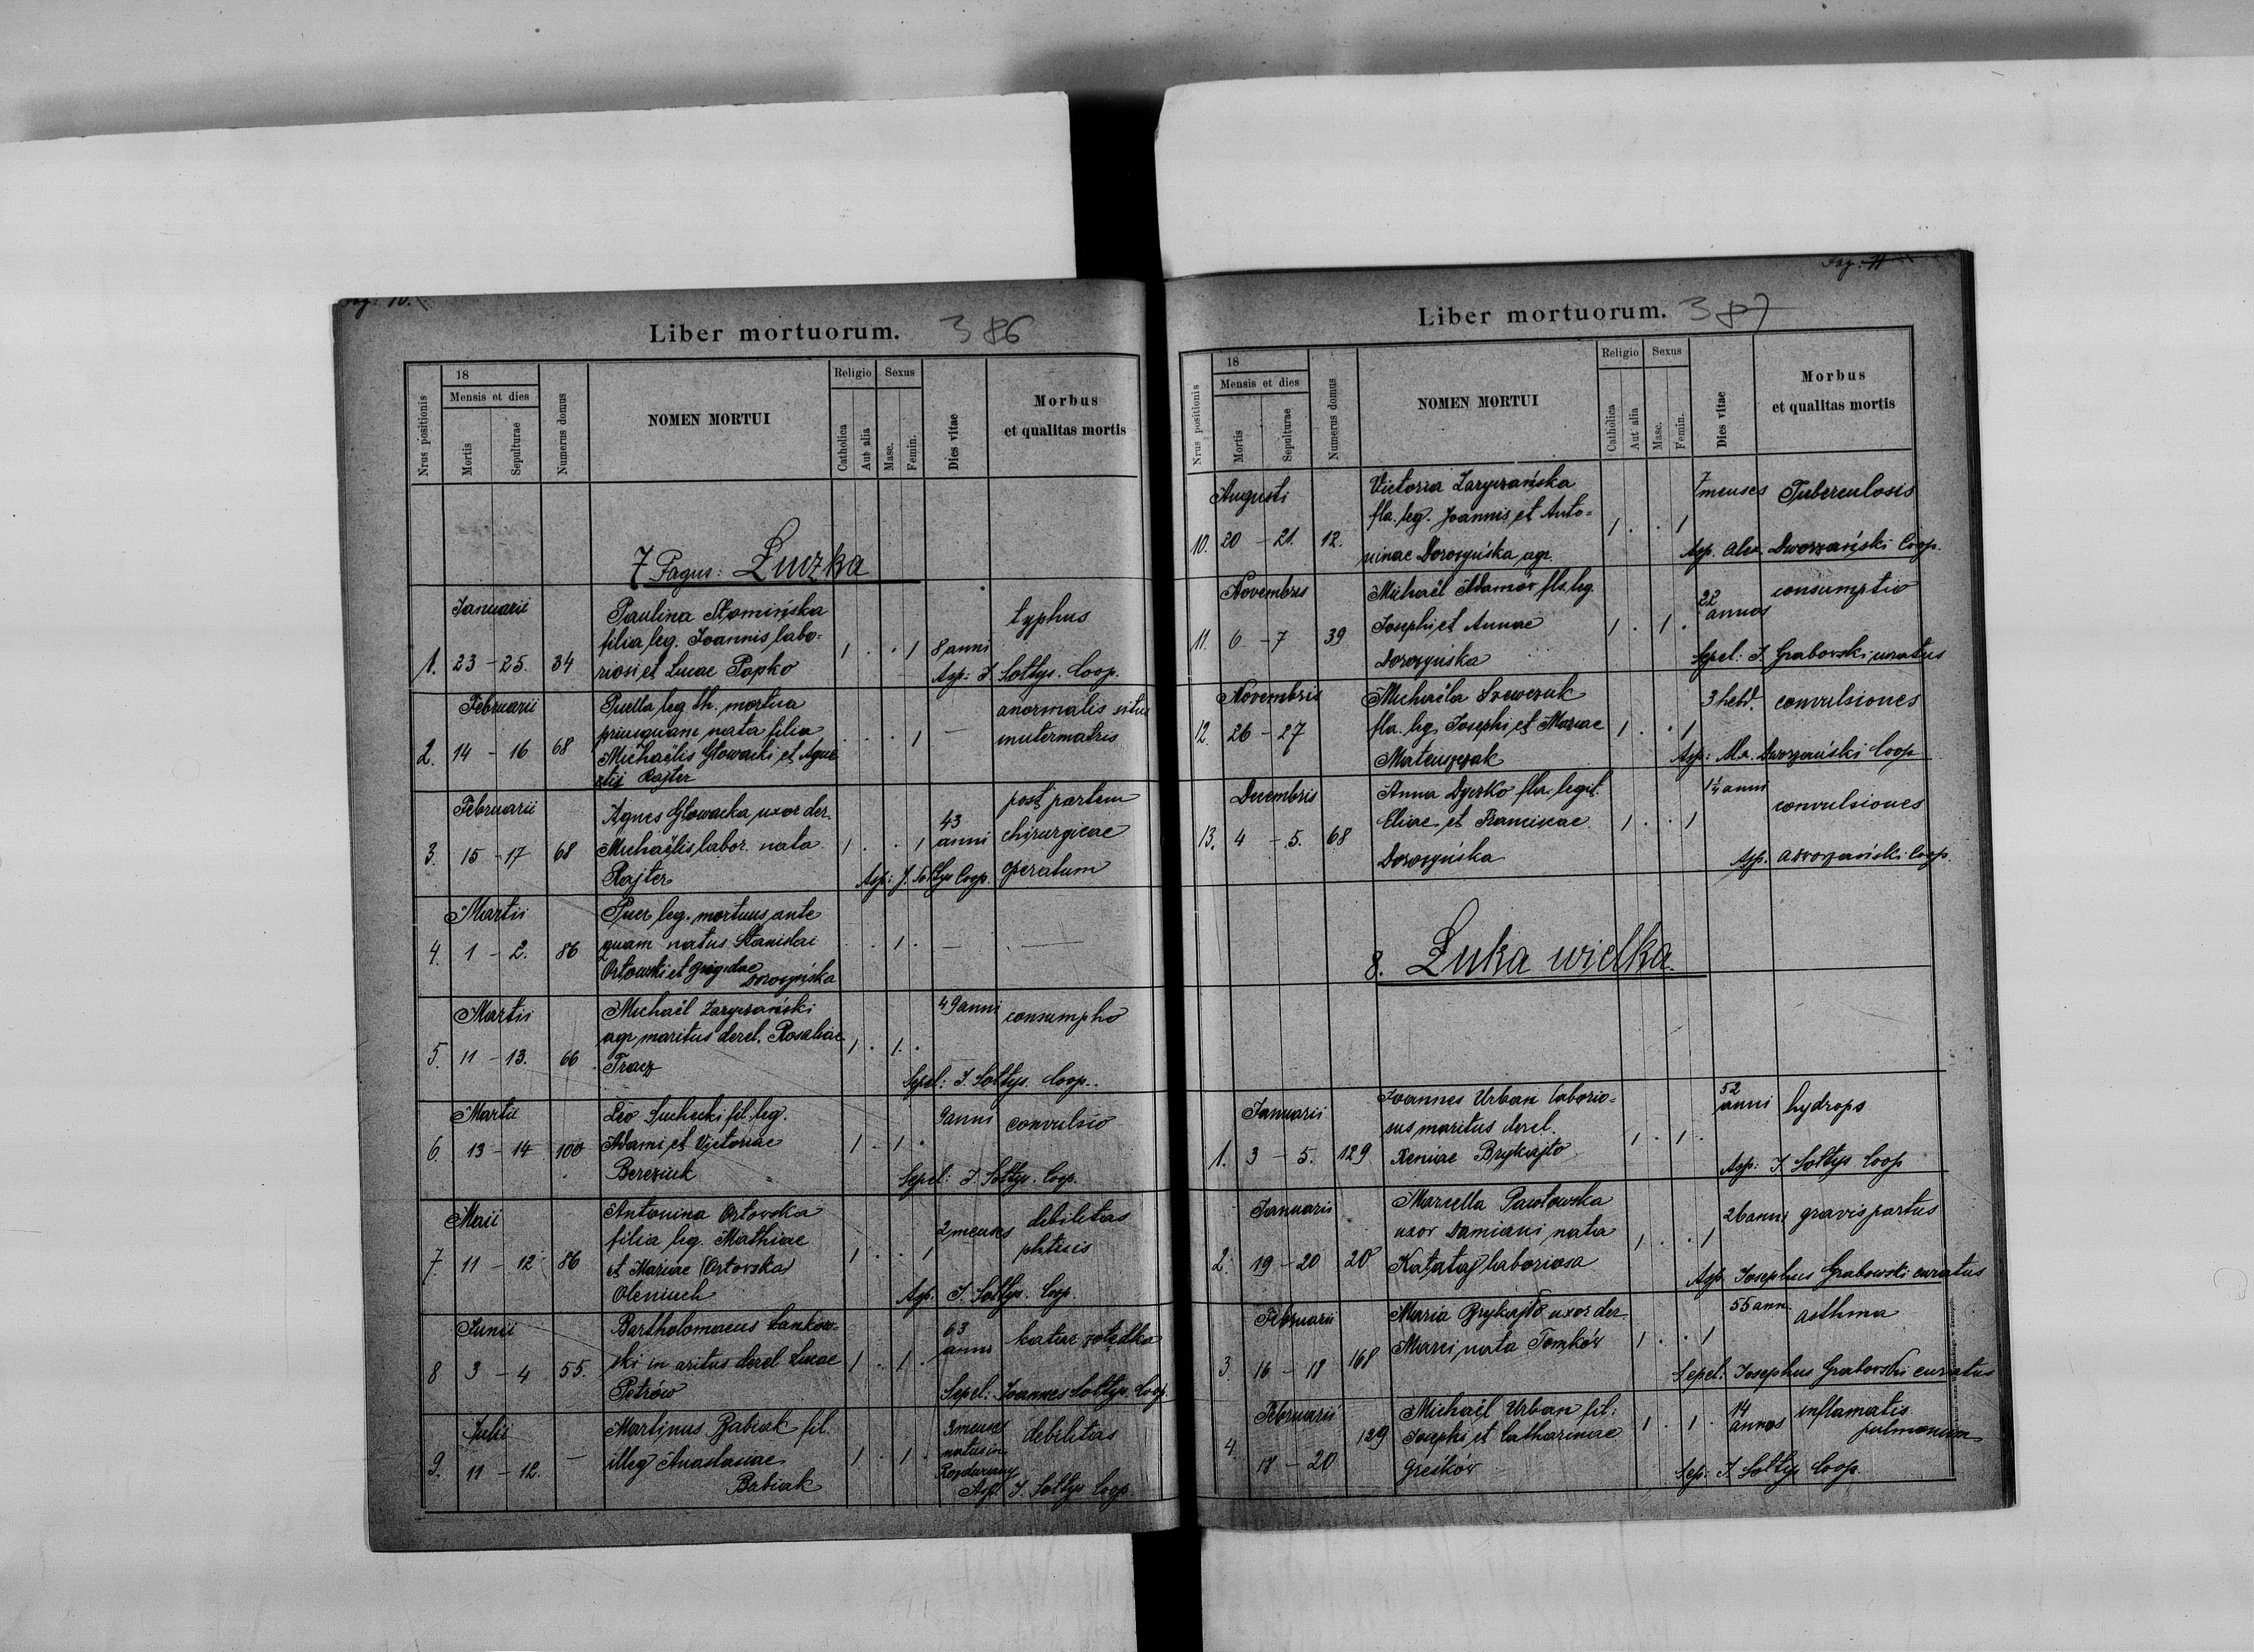 Pag: 10.
Liber mortuorum. 386
Nrus positionis
18
Mensis et dies
Mortis
Sepulturae
Numerus domus
NOMEN MORTUI
Religio
Catholica
Aut alia
Sexus
Masc.
Femin.
Dies vitae
Morbus
et qualitas mortis
7 Pagus: Łuczka
Januarii
1. 23 - 25. 34
Paulina Słomińska
filia leg. Joannis labo-
riosi et Lucae Papko
1 . . 1 8 anni typhus
Asp: J Sołtys. Coop.
Februarii
2. 14 - 16 68
Puella leg. th. mortua
priusquam nata filia
Michaëlis Głowacki et Agne
tis Rajter
. . . 1 —
anormalis situs
in utermatris
Februarii
3. 15 - 17 68
Agnes Głowacka uxor der.
Michaëlis labor. nata
Rajter
1 . . 1 43 anni
post partem
chirurgicae
operatum
Asp: J. Sołtys Coop.
Martii
4. 1 - 2. 86
Puer leg. mortuus ante
quam natus Stanislai
Ortowski et Brigidae
Doroszyńska
. . 1 . — —
Martii
5. 11 - 13. 66
Michaël Zaryczański
agr. maritus derel. Rosaliae
Tracz
1 . 1 . 49 anni consumptio
Sepel: J. Sołtys. Coop.
Martii
6. 13 - 14 100
Leo Suchecki fil. leg.
Adami et Victoriae
Bereziuk
1 . 1 . 9 anni convulsio
Sepel: J. Sołtys. Coop.
Maii
7. 11 - 12 86
Antonina Ortovska
filia leg. Mathiae
et Mariae (Ortovska)
Oleniuch
1 . . 1 2 menses debilitas
phtisis
Asp. J. Sołtys. Coop.
Junii
8 3 - 4 55.
Bartholomaeus Łankow-
ski maritus derel Lucae
Petrów
1 . 1 . 63 anni katar żołądka
Sepel: Joannes Sołtys. Coop.
Julii
9. 11 - 12. —
Martinus Babiak fil.
illeg Anastasiae
Babiak
1 . 1 . 3 menses
natus in
debilitas
Asp. J. Sołtys Coop.
Pag: 11
Liber mortuorum. 387
Nrus positionis
18
Mensis et dies
Mortis
Sepulturae
Numerus domus
NOMEN MORTUI
Religio
Catholica
Aut alia
Sexus
Masc.
Femin.
Dies vitae
Morbus
et qualitas mortis
Augusti
10. 20 - 21. 12.
Victoria Zaryczańska
fla. leg. Joannis et Anto-
ninae Doroszyńska agr.
1 . . 1 7 menses Tuberculosis
Asp. Alex. Dworzański Coop.
Novembris
11. 6 - 7 39
Michaël Adamów fls. leg.
Josephi et Annae
Doroszyńska
1 . 1 . 22 annos consumptio
Sepel: J. Grabovski curatus
Novembris
12. 26 - 27
Michaëla Szewczuk
fla. leg. Josephi et Mariae
Mateuszczak
1 . . 1 3 hebd. convulsiones
Asp: Alx. Dworzański Coop
Decembris
13. 4 - 5. 68
Anna Dyczko fla. legit.
Eliae et Franciscae
Doroszyńska
1 . . 1 1¼ anni convulsiones
Asp. A Dworzański Coop.
8. Łuka wielka.
Januarii
1. 3 - 5. 129
Joannes Urban laborio-
sus maritus derel.
Xeniae Brykajło
1 . 1 . 52 anni hydrops
Asp: J Sołtys Coop
Januarii
2. 19 - 20 20
Marcella Pawłowska
uxor Damiani nata
Kałataj laboriosa
1 . . 1 26 anni gravis partus
Asp Josephus Grabowski curatus
Februarii
3. 16 - 18 168
Maria Brykajło uxor der.
Marci nata Tomków
1 . . 1 55 ann. asthma
Sepel: Josephus Grabovski curatus
Februarii
4. 18 - 20 129
Michaël Urban fil:
Josephi et Catharinae
Greśków
1 . 1 . 14 annos inflamatis
pulmonum
Sep: J Sołtys Coop.